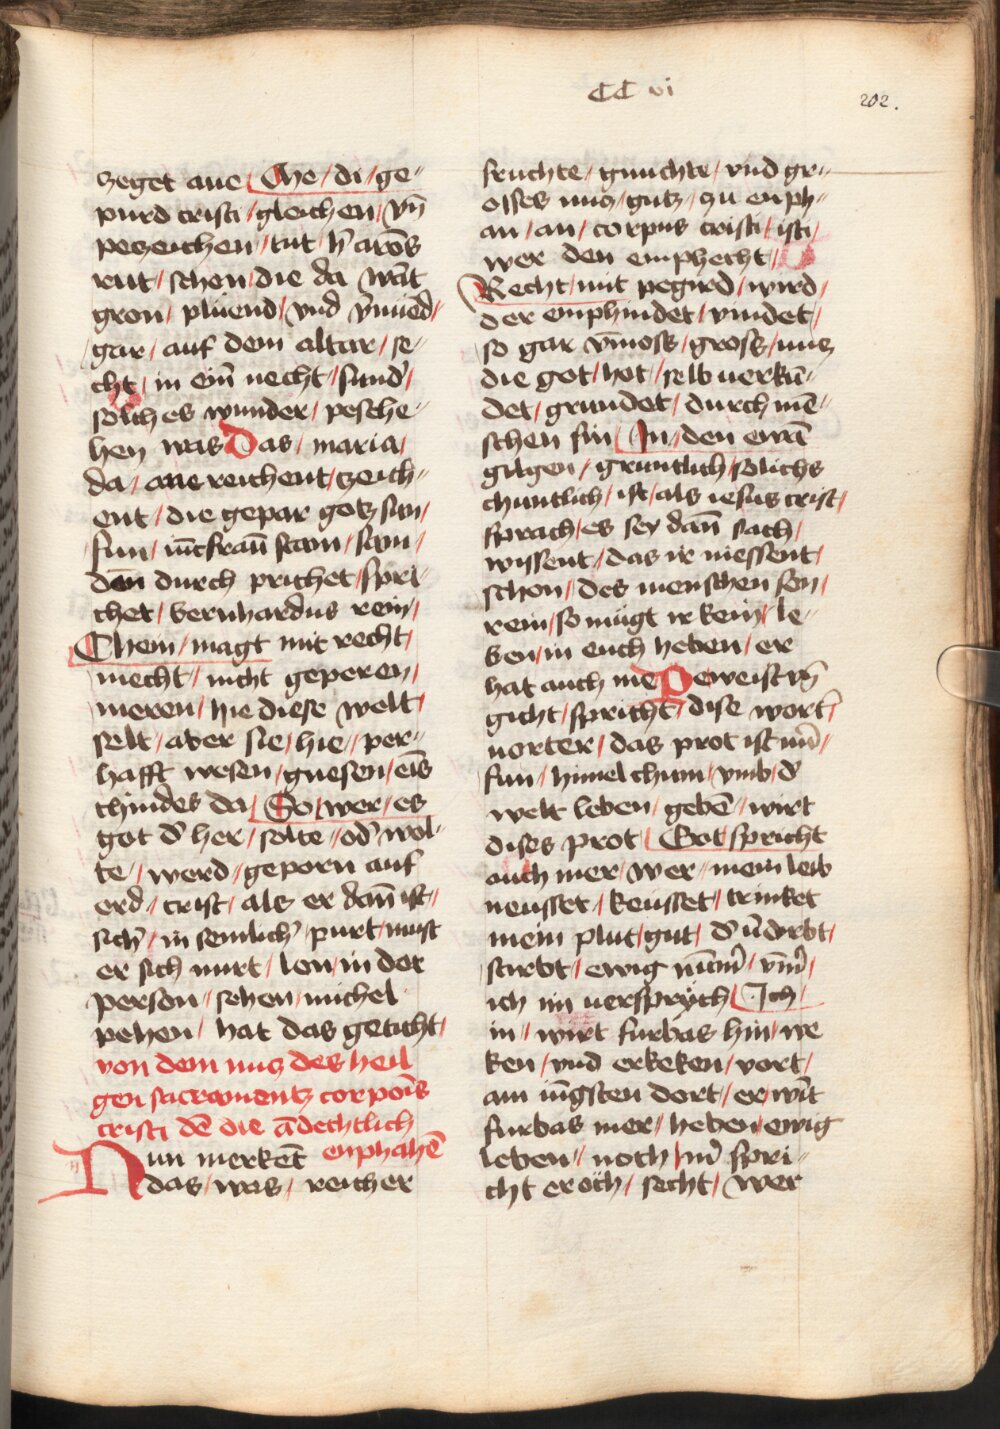 CC vi
202.
zeget aue Che / di / ge〃
purd cristi / gleichen / vn̄
pezeichen / tut / h̄ arōs
rut / schen / die da wāt
gron / pluend / vnd v̄nued〃
gar / auf dem altar / se〃
cht / in ein̄ necht / stund /
solich es wunder / pesche〃
hen was Das / maria /
da / ane reichent / zeich〃
ent / die gepar gotz sun /
fun / iūcfraū scam / sam /
den durch prichet / spri〃
chet / bernhardus rein /
Chein / magt mit recht /
mecht / nicht geperen /
meren / hie diese welt /
selt / aber sie / hie〃 per〃
hafft wesen / gnesen / eīs
chindes da So / wer / es
got d̄ her / solte〃 od̄ wol〃
te〃 / werd / geporn auf
erd〃 / crist / als er dan̄ ist〃
sich̄ / in semlich̄ / purt / must
er sich nurt / len / in der
person〃 sehen / michel
pehen / hat das geticht /
von dem nutz des heil
gen sacramentz corpoīs
cristi dē die ādechtlich
enphahē
Nun merkēt
das / was / reicher
fruchte / gnuchte / vnd gr〃
osses nutz / gutz / zu enph〃
an / an / corpus cristi / isti /
wer den emphecht /
Recht / mit pegird / wird /
der emphindet / vindet /
so gar v̄moss / gross / nutz
die got / hot / selb uerkū〃
det / grundet / durch mē〃
schen sin In / den ewā
gilgen / gruntlich / solichs
chuntlich / ist / als iesus crist /
sprach / es sey dan̄ sach /
wissent / das ir niessent /
schon / des menschen son /
rein / so mügt ir kein / le〃
ben / in euch heben / er
hat auch me Peweist vn̄
gicht / spricht / dise wort /
uorter / das prot ist mir̄ /
fun / himel chum / vmb / d̄
welt leben / gebē〃 wirt
dises prot Got spricht
auch mer / wer〃 mein leib
neusset / keusset / trinket
mein plut / gut / d̄ v̄dirbt /
stirbt / ewig nūm̄ / v̄m̄ /
ich im uersprÿch Ich /
in / wirt furbas hin / we
ken / vnd erkeken / vort /
am iūgsten dort / er / wīt
furbas mer / heben / ewig
leben〃 noch / m̄ spri〃
cht er öch / secht / wer